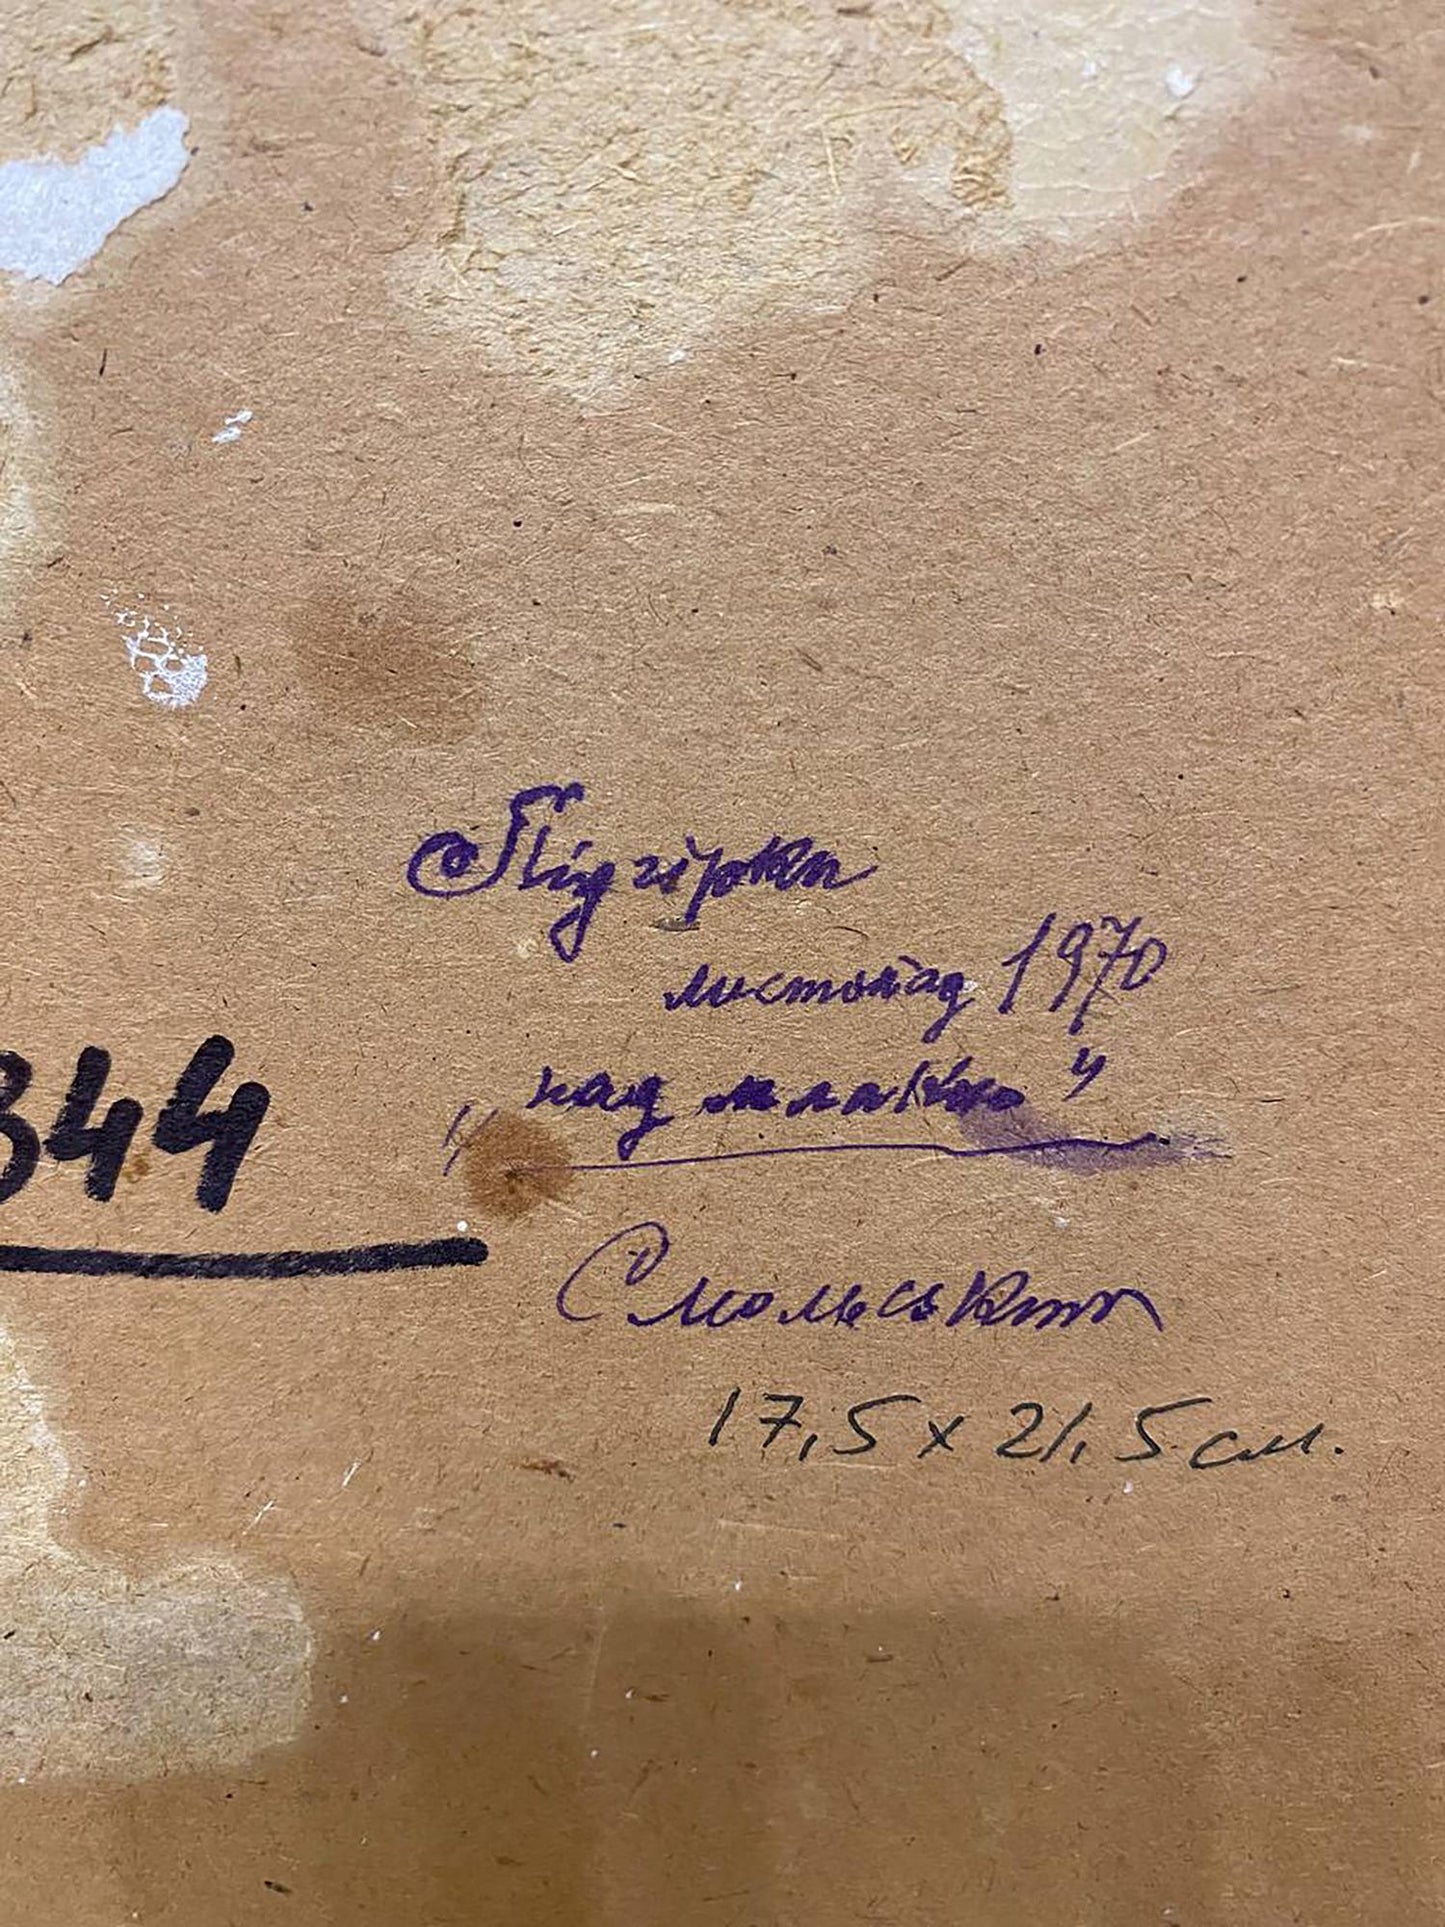 Підгірки
листопад 1970
344
"над млакою"
Смольський
17,5 х 21,5 см.